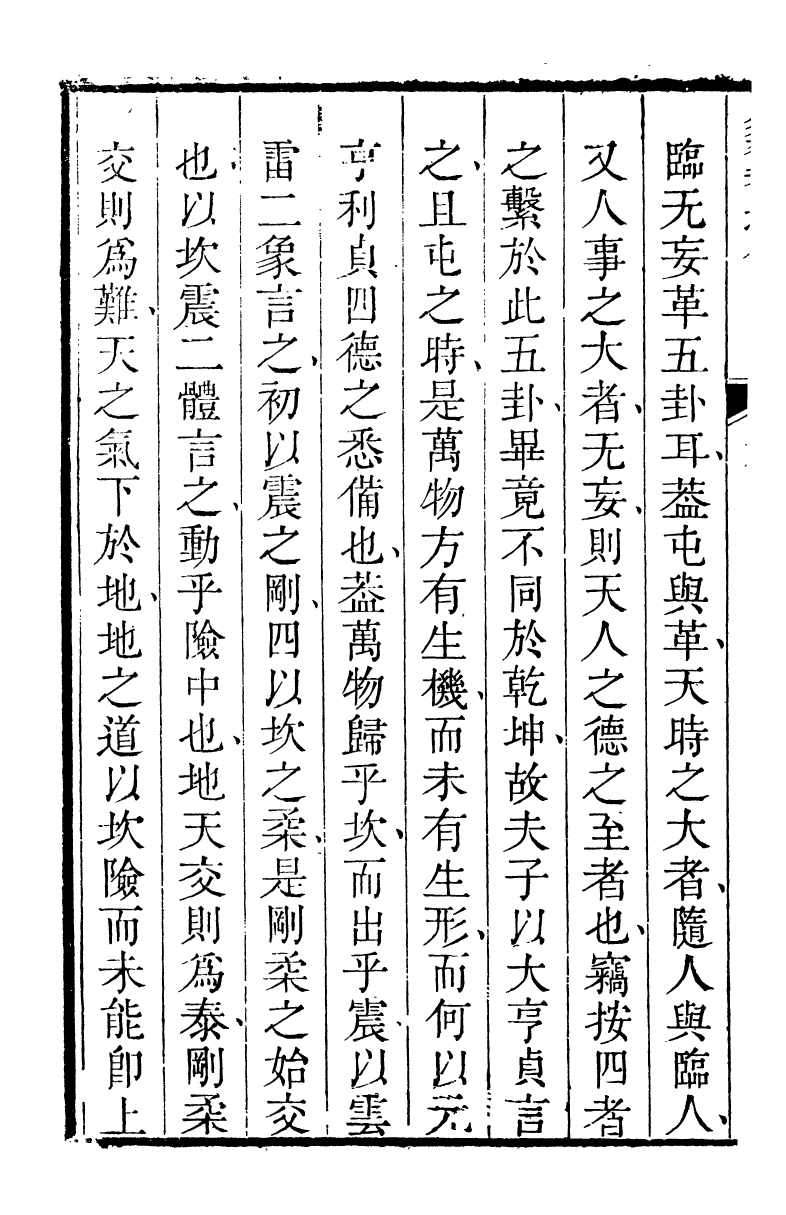 臨无妄革五卦耳、葢屯與革、天時之大者、隨人與臨人、
又人事之大者、无妄、則天人之德之至者也、竊按四者
之繫於此五卦、畢竟不同於乾坤、故夫子以大亨貞言
之、且屯之時、是萬物方有生機、而未有生形、而何以元
亨利貞四德之悉備也、葢萬物歸乎坎、而出乎震、以雲
雷二象言之、初以震之剛、四以坎之柔、是剛柔之始交
也、以坎震二體言之、動乎險中也、地天交則爲泰、剛柔
交則爲難、天之氣下於地、地之道以坎險而未能卽上